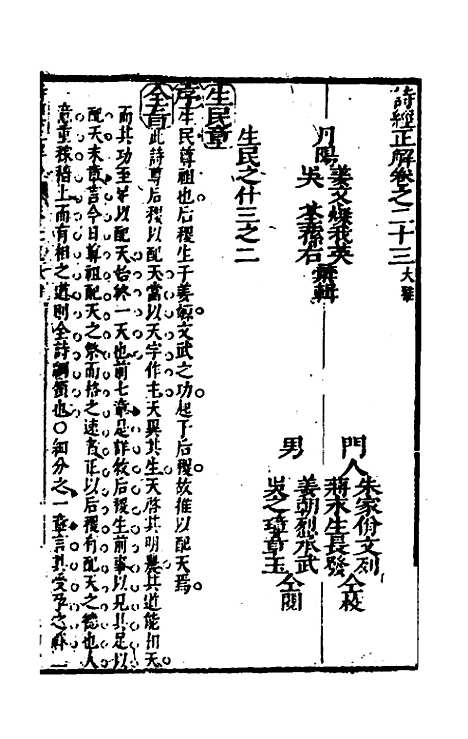 詩經正解卷之二十三 大雅
丹陽 姜文燦我英 吳荃蓀右 彙輯
門人 朱家佾文列 蔣永生長發 仝校
男 姜朝烈承武 吳之璋章玉 仝閱
生民之什三之二
生民章
序 生民尊祖也后稷生于姜嫄文武之功起于后稷故推以配天焉
全旨 此詩尊后稷以配天當以天字作主天異其生天啓其明農其道能相天
而其功至單以配天始終一天也前七章是詳敘后稷生前事以見其足以
配天末章言今日尊祖配天之祭而格之速者正以后稷有配天之德也人
意重稼穡上而有相之道則全詩綱領也○細分之一章言其受孕之祥二